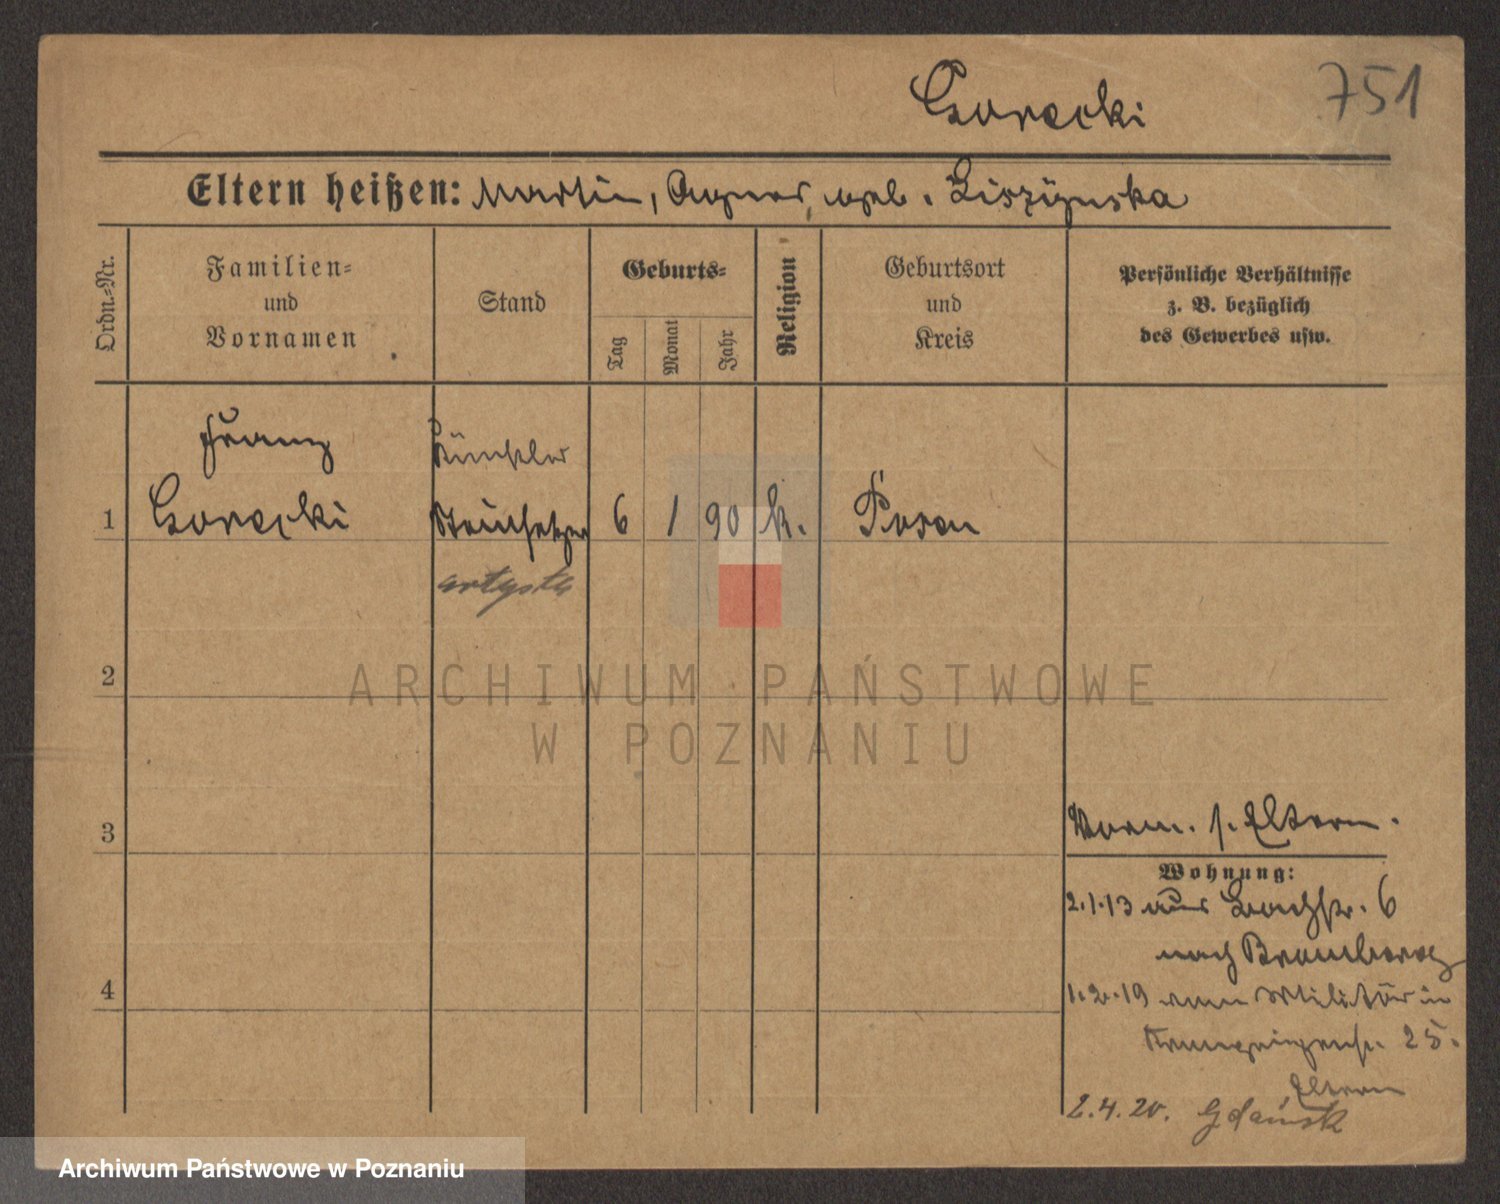 751
Gorecki
Eltern heißen: Martin, Agnes, geb. Liszynska
Ordn.=Nr.
Familien=
und
Vornamen
Stand
Geburts=
Tag
Monat
Jahr
Religion
Geburtsort
und
Kreis
Persönliche Verhältnisse
z. B. bezüglich
des Gewerbes usw.
Franz
Künstler
1 Gorecki Steinsetzer 6 1 90 k. Posen
artysta
ARCHIWUM PAŃSTWOWE
W POZNANIU
2
3
Vorm. s. Eltern.
Wohnung:
2.1.13 aus Bachstr. 6
nach Bromberg
4
1.2.19 vom Militär in
25.
Eltern
2.4.20. Gdańsk
Archiwum Państwowe w Poznaniu